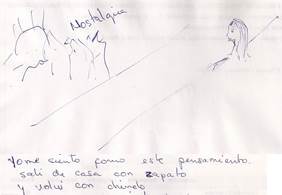 Nostalgia
Yo me siento como este pensamiento.
salí de casa con zapato
y volví con chinelo